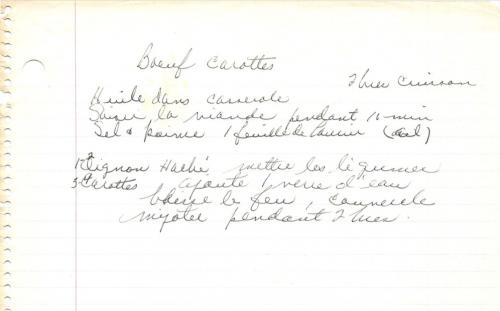 Boeuf Carottes
2 hres Cuisson
Huile dans casserole
Saisir la viande pendant 15 min
Sel & poivre 1 feuille de laurier
1 Oignon Haché mettre les légumes
3 Carottes ajoute 1 verre d'eau
baisse le feu, couvercle
mijoter pendant 2 hres.